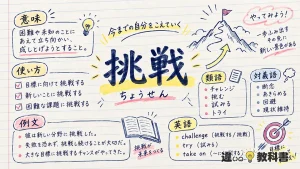 意味
困難や未知のことに
あえて立ち向かい、
成しとげようとすること。
使い方
目標に向けて挑戦する
新しいことに挑戦する
困難な課題に挑戦する
例文
彼は新しい分野に挑戦した。
失敗を恐れず、挑戦し続けることが大切だ。
大きな目標に挑戦するチャンスがやってきた。
今までの自分をこえていく
挑戦
ちょうせん
挑戦が
未来をつくる
やってみよう!
一歩ふみ出す
その先に
新しい景色がある
類語
チャレンジ
挑む
試みる
トライ
対義語
断念
あきらめる
回避
現状維持
英語
challenge (挑戦する/挑戦)
try (試みる)
take on
目標に
教科書